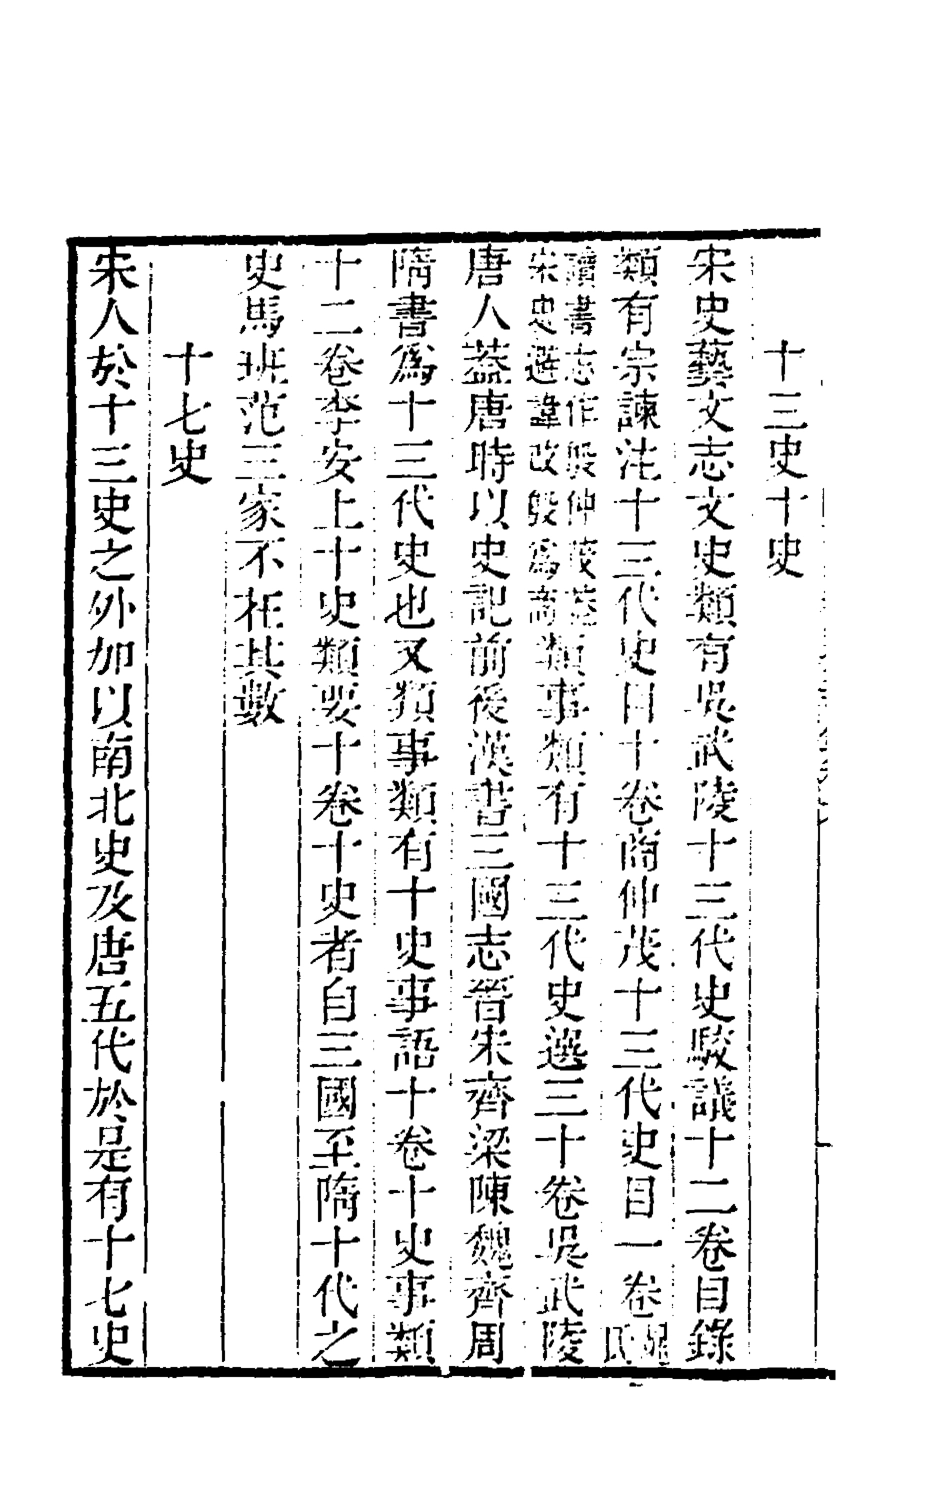 十三史十史
宋史藝文志文史類有吳武陵十三代史駮議十二卷目錄
類有宗諫注十三代史目十卷商仲茂十三代史目一卷晁氏
讀書志作殷仲茂葢宋史避諱改殷爲商類事類有十三代史選三十卷吳武陵
唐人葢唐時以史記前後漢書三國志晉宋齊梁陳魏齊周
隋書爲十三代史也又類事類有十史事語十卷十史事類
十二卷李安上十史類要十卷十史者自三國至隋十代之
史馬班范三家不在其數
十七史
宋人於十三史之外加以南北史及唐五代於是有十七史